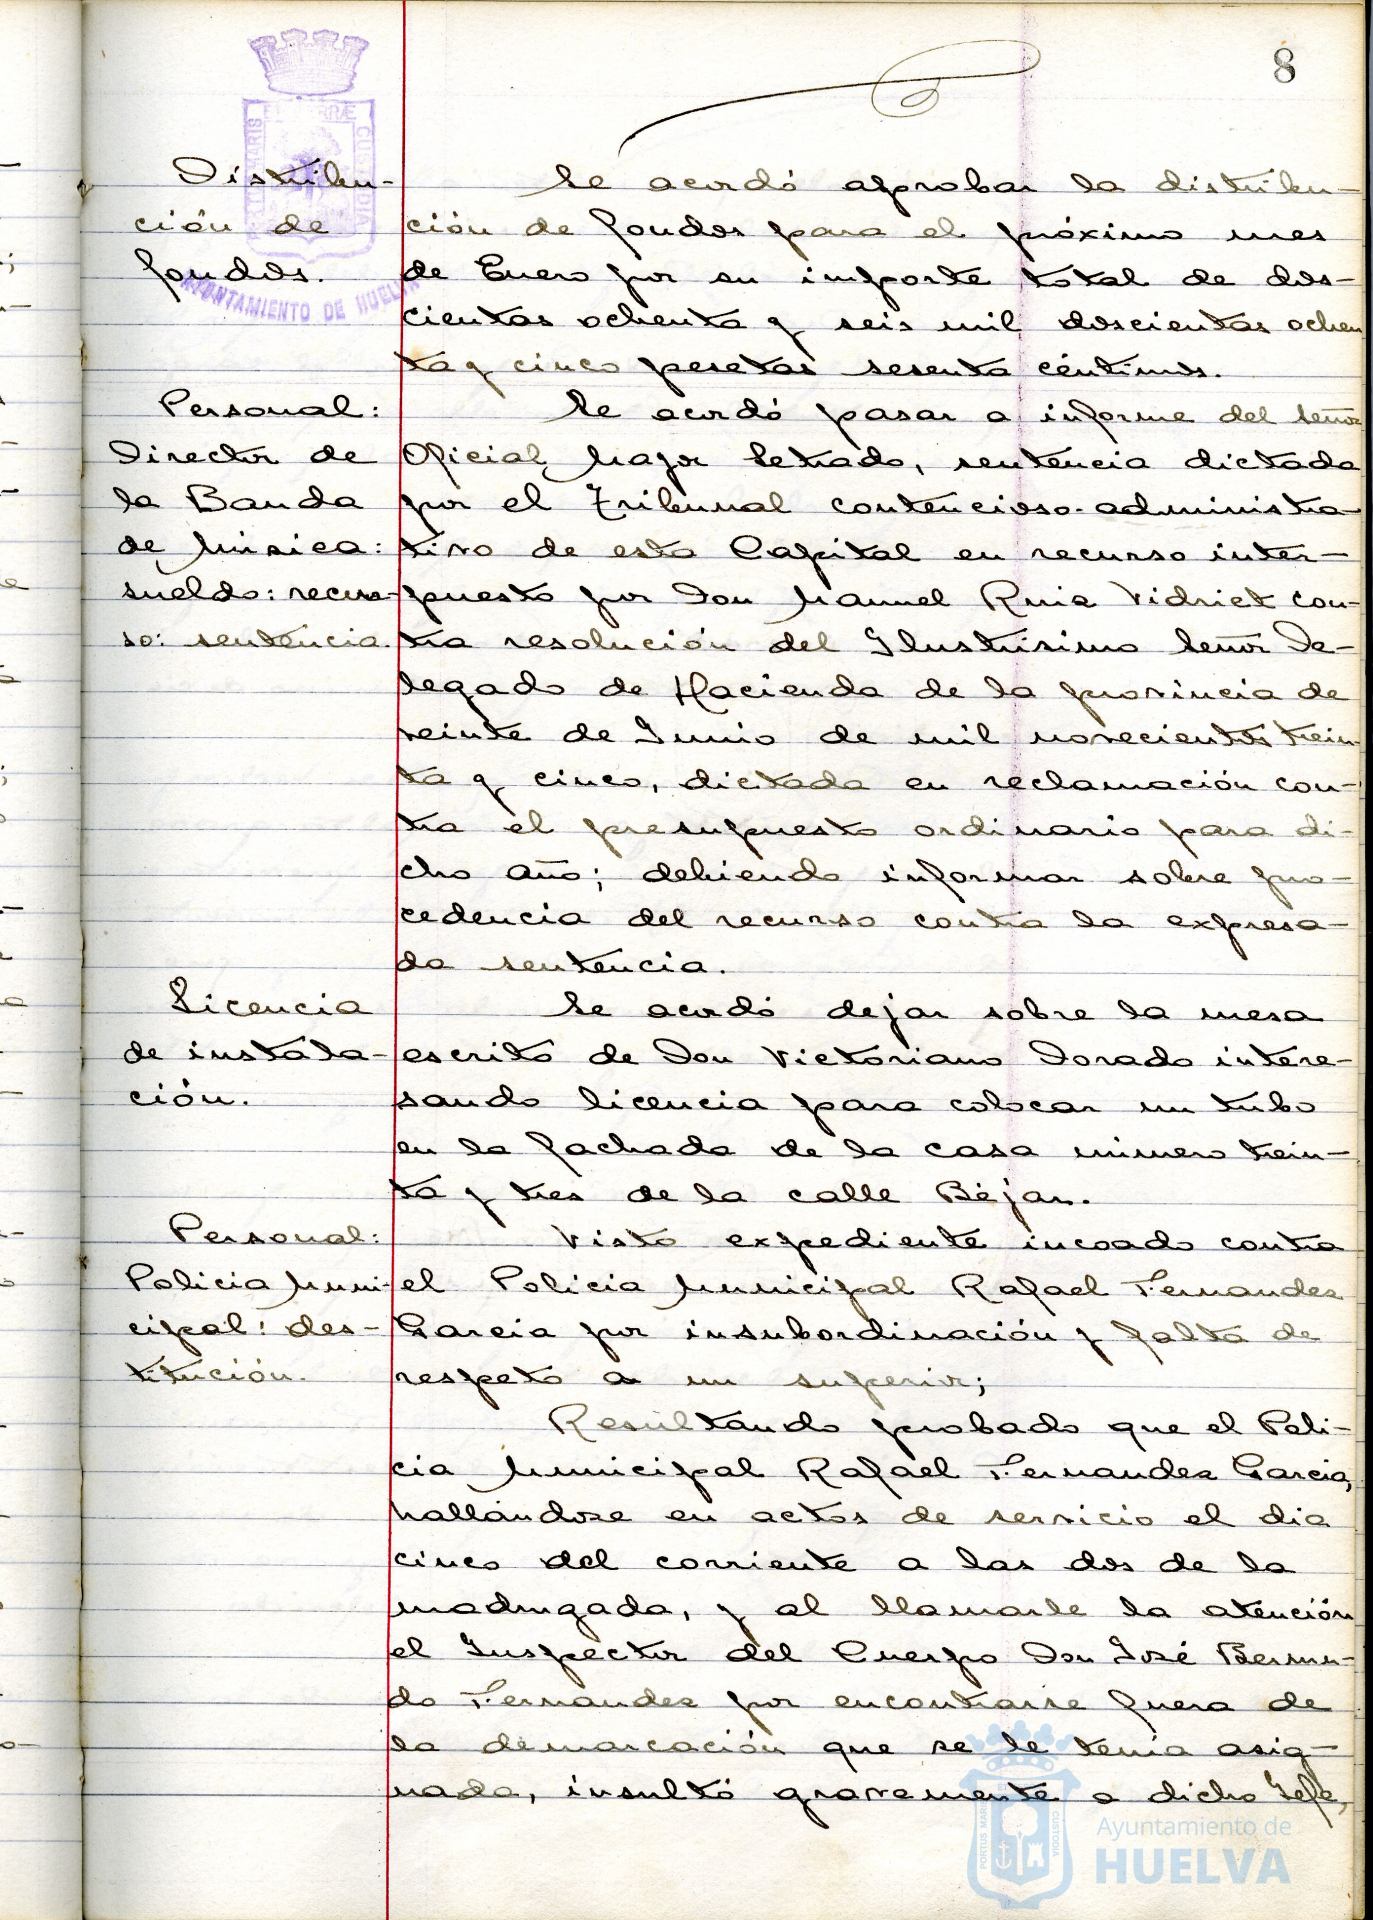 8
PORTUS MARIS ET TERRÆ CUSTODIA
AYUNTAMIENTO DE HUELVA
Distribu-
ción de
fondos.
Se acordó aprobar la distribu-
ción de fondos para el próximo mes
de Enero por su importe total de dos-
cientas ochenta y seis mil doscientas ochen
ta y cinco pesetas sesenta céntimos.
Personal:
Director de
la Banda
de Música:
sueldo: recur-
so: sentencia.
Se acordó pasar a informe del Señor
Oficial Mayor Letrado, sentencia dictada
por el Tribunal contencioso-administra-
tivo de esta Capital en recurso inter-
puesto por Don Manuel Ruiz Vidriet con-
tra resolución del Ilustrísimo Señor De-
legado de Hacienda de la provincia de
veinte de Junio de mil novecientos trein-
ta y cinco, dictada en reclamación con-
tra el presupuesto ordinario para di-
cho año; debiendo informar sobre pro-
cedencia del recurso contra la expresa-
da sentencia.
Licencia
de instala-
ción.
Se acordó dejar sobre la mesa
escrito de Don Victoriano Dorado intere-
sando licencia para colocar un tubo
en la fachada de la casa número trein-
ta y tres de la calle Béjar.
Personal:
Policia Muni-
cipal: des-
titución.
Visto expediente incoado contra
el Policia Municipal Rafael Fernandez
Garcia por insubordinación y falta de
respeto a un superior;
Resultando probado que el Poli-
cia Municipal Rafael Fernandez Garcia,
hallándose en actos de servicio el dia
cinco del corriente a las dos de la
madrugada, y al llamarle la atención
el Inspector del Cuerpo Don José Bermu-
do Fernandez por encontrarse fuera de
la demarcación que se le tenia asig-
nada, insultó gravemente a dicho Jefe,
PORTUS MARIS ET TERRÆ CUSTODIA
Ayuntamiento de
HUELVA